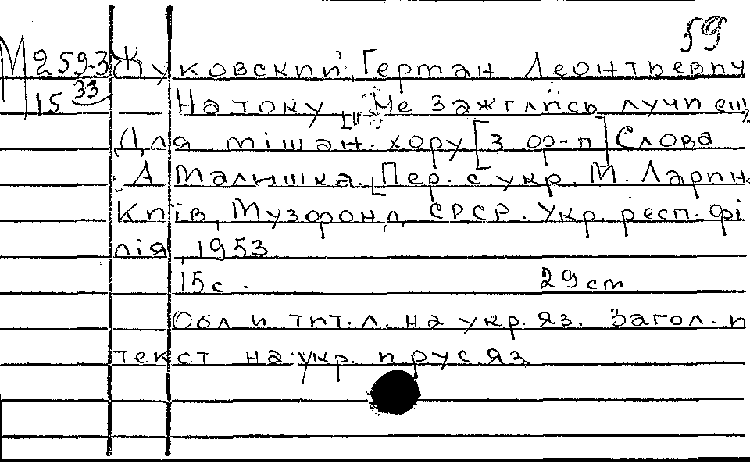 59
М 259-3 Жуковский, Герман Леонтьевич
15 33 На току. [Не зажглись лучи ещ
Для мішан. хору [з ор-п] Слова
А Малышка. [Пер. с укр. М. Ларин
Київ, Музфонд СРСР. Укр. респ. фі
лія, 1953
15 с. 29 cm
Обл и тит. л. на укр. яз. Загол. и
текст на укр. и рус яз